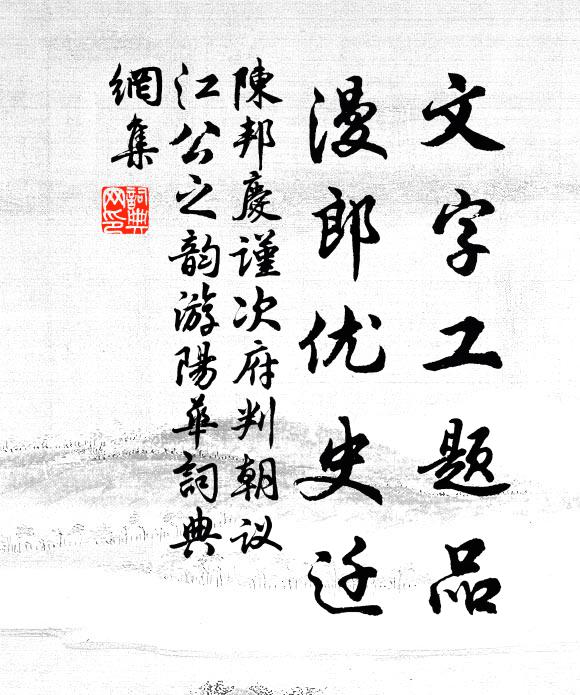 文字工题品
漫郎优史迁
陳邦慶謹次府判朝议
江公之韵游陽華詞典
網集
詞典
网印